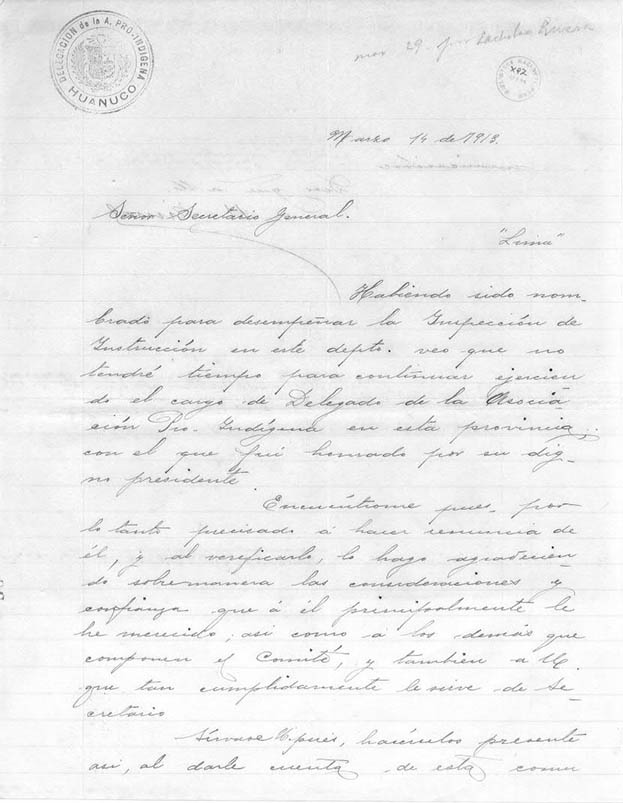 DELEGACION de la A. PRO-INDIGENA
HUANUCO
mar 29. por Ladislao
Marzo 14 de 1913.
Señor Secretario General.
"Lima"
Habiendo sido nom-
brado para desempeñar la Inspección de
Instrucción en este depto. veo que no
tendré tiempo para continuar ejercien
do el cargo de Delegado de la Asocia-
sión Pro-Indígena en esta provincia,
con el que fuí honrado por su dig-
no presidente.
Encuéntrome pues, por
lo tanto precisado á hacer renuncia de
él, y al verificarlo, lo hago agradecien-
do sobremanera las consideraciones y
confianza que á él principalmente le
he merecido; asi como á los demás que
componen el Comité, y tambien a U.
que tan cumplidamente le sirve de Se-
cretario
Sírvase U. pues, hacérselos presente
asi, al darle cuenta de esta comu